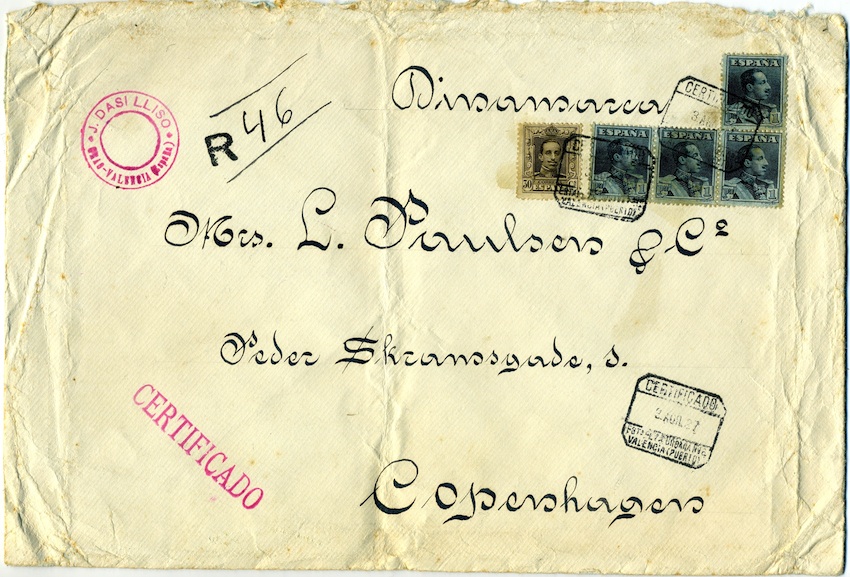 J. DASI LLISO
GRAO-VALENCIA (España)
R 46
Dinamarca
ESPAÑA
ESPAÑA
ESPAÑA
ESPAÑA
30
CERTIFICADO
VALENCIA (PUERTO)
Mrs. L. Paulsen & Cº
Peder Skramsgade, 5.
CERTIFICADO
CERTIFICADO
2 AGO. 27
VALENCIA (PUERTO)
Copenhagen